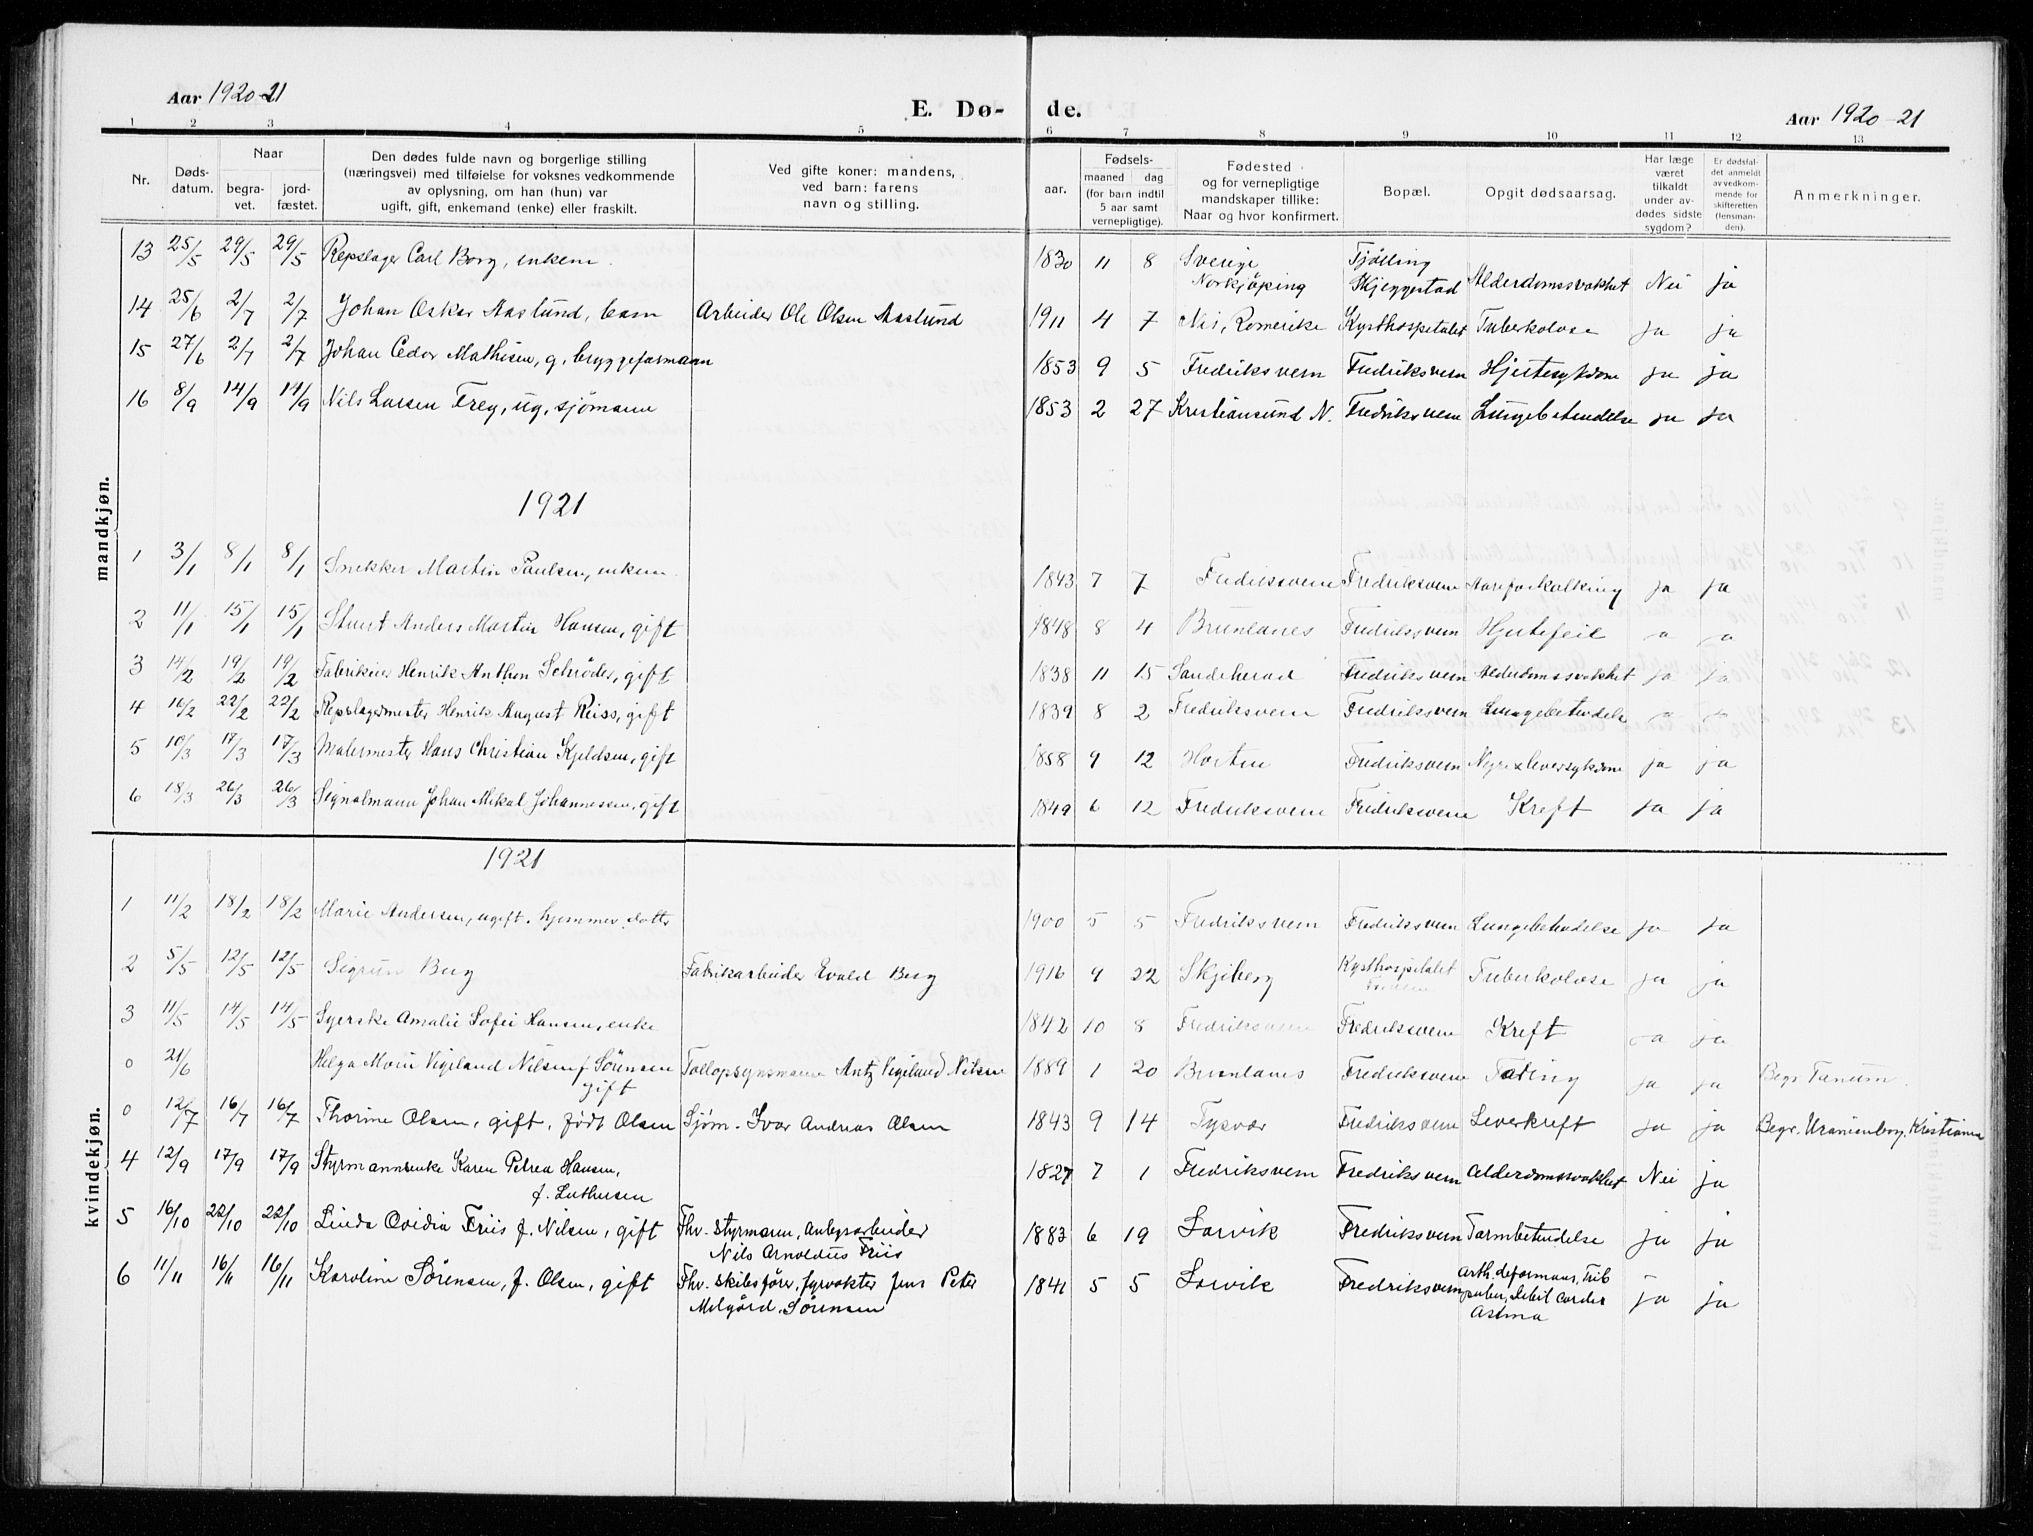 Aar 1920-21
E. Dø- de.
Aar 1920-21
1 2 3 4 5 6 7 8 9 10 11 12 13
Nr.
Døds-
datum.
Naar
begra-
vet.
jord-
fæstet.
Den dødes fulde navn og borgerlige stilling
(næringsvei) med tilføielse for voksnes vedkommende
av oplysning, om han (hun) var
ugift, gift, enkemand (enke) eller fraskilt.
Ved gifte koner: mandens,
ved barn: farens
navn og stilling.
Fødsels-
aar.
maaned dag
(for barn indtil
5 aar samt
vernepligtige).
Fødested
og for vernepligtige
mandskaper tillike:
Naar og hvor konfirmert.
Bopæl.
Opgit dødsaarsag.
Har læge
været
tilkaldt
under av-
dødes sidste
sygdom?
Er dødsfal-
det anmeldt
av vedkom-
mende for
skifteretten
(lensman-
den).
Anmerkninger.
mandkjøn.
13 25/5 29/5 29/5 Repslager Carl Borg, enkem. 1830 11 8 Sverige Norkjøping Tjølling Skjeggestad Alderdomssvakhet Nei ja
14 25/6 2/7 2/7 Johan Oskar Aaslund, barn Arbeider Ole Olsen Aaslund 1911 4 7 Nes, Romerike Kysthospitalet Tuberkolose ja ja
15 27/6 2/7 2/7 Johan Cedor Mathisen, g. bryggeformann 1853 9 5 Fredriksvern Fredriksvern Hjertesykdom ja ja
16 8/9 14/9 14/9 Nils Larsen Frey, ug, sjømann 1853 2 27 Kristiansund N. Fredriksvern Lungebetendelse ja ja
1921
1 3/1 8/1 8/1 Snekker Martin Paulsen, enkem. 1843 7 7 Fredriksvern Fredriksvern Aareforkalkning ja ja
2 11/1 15/1 15/1 Stuert Anders Martin Hansen, gift 1848 8 4 Brunlanes Fredriksvern Hjertefeil ja ja
3 14/2 19/2 19/2 Fabrikeier Henrik Anthon Schrøder, gift 1838 11 15 Sandeherad Fredriksvern Alderdomssvakhet ja ja
4 16/2 22/2 22/2 Repslagermester Henrik August Reiss, gift 1839 8 2 Fredriksvern Fredriksvern Lungebetendelse ja ja
5 10/3 17/3 17/3 Malermester Hans Christian Kjeldsen, gift 1858 9 12 Horten Fredriksvern Nyre & leversykdom ja ja
6 18/3 26/3 26/3 Signalmann Johan Mikal Johannessen, gift 1849 6 12 Fredriksvern Fredriksvern Kreft ja ja
1921
kvindekjøn.
1 11/2 18/2 18/2 Marie Andersen, ugift. hjemmev. datter 1900 5 5 Fredriksvern Fredriksvern Lungebetendelse ja ja
2 5/5 12/5 12/5 Sigrun Berg Fabrikarbeider Evald Berg 1916 9 22 Skjeberg Kysthospitalet Tuberkolose ja ja
3 11/5 14/5 14/5 Syerske Amalie Sofie Hansen, enke 1842 10 8 Fredriksvern Fredriksvern Kreft ja ja
0 21/6 Helga Marie Vigeland Nilsen f Sørensen Tollopsynsmann Antz Vigeland Nilsen 1889 1 20 Brunlanes Fredriksvern Tæring ja ja Begr. Tanum.
gift
0 12/7 16/7 16/7 Thorine Olsen, gift, født Olsen Sjøm. Ivar Andreas Olsen 1843 9 14 Tysvær Fredriksvern Leverkreft ja ja Begr. Uranienborg, Kristiania
4 12/9 17/9 17/9 Styrmannsenke Karen Petrea Hansen, 1827 7 1 Fredriksvern Fredriksvern Alderdomssvakhet Nei ja
f. Luthersen
5 16/10 22/10 22/10 Linda Ovidia Friis f. Nilsen, gift Fhv. styrmann, Anlegsarbeider 1883 6 19 Larvik Fredriksvern Tarmbetendelse ja ja
Nils Arnoldus Friis
6 11/11 16/11 16/11 Karoline Sørensen, f. Olsen, gift Fhv. skibsfører, fyrvokter Jens Peter 1841 5 5 Larvik Fredriksvern Arth. deformans, ja ja
Melgård Sørensen Debil cordis
Astma